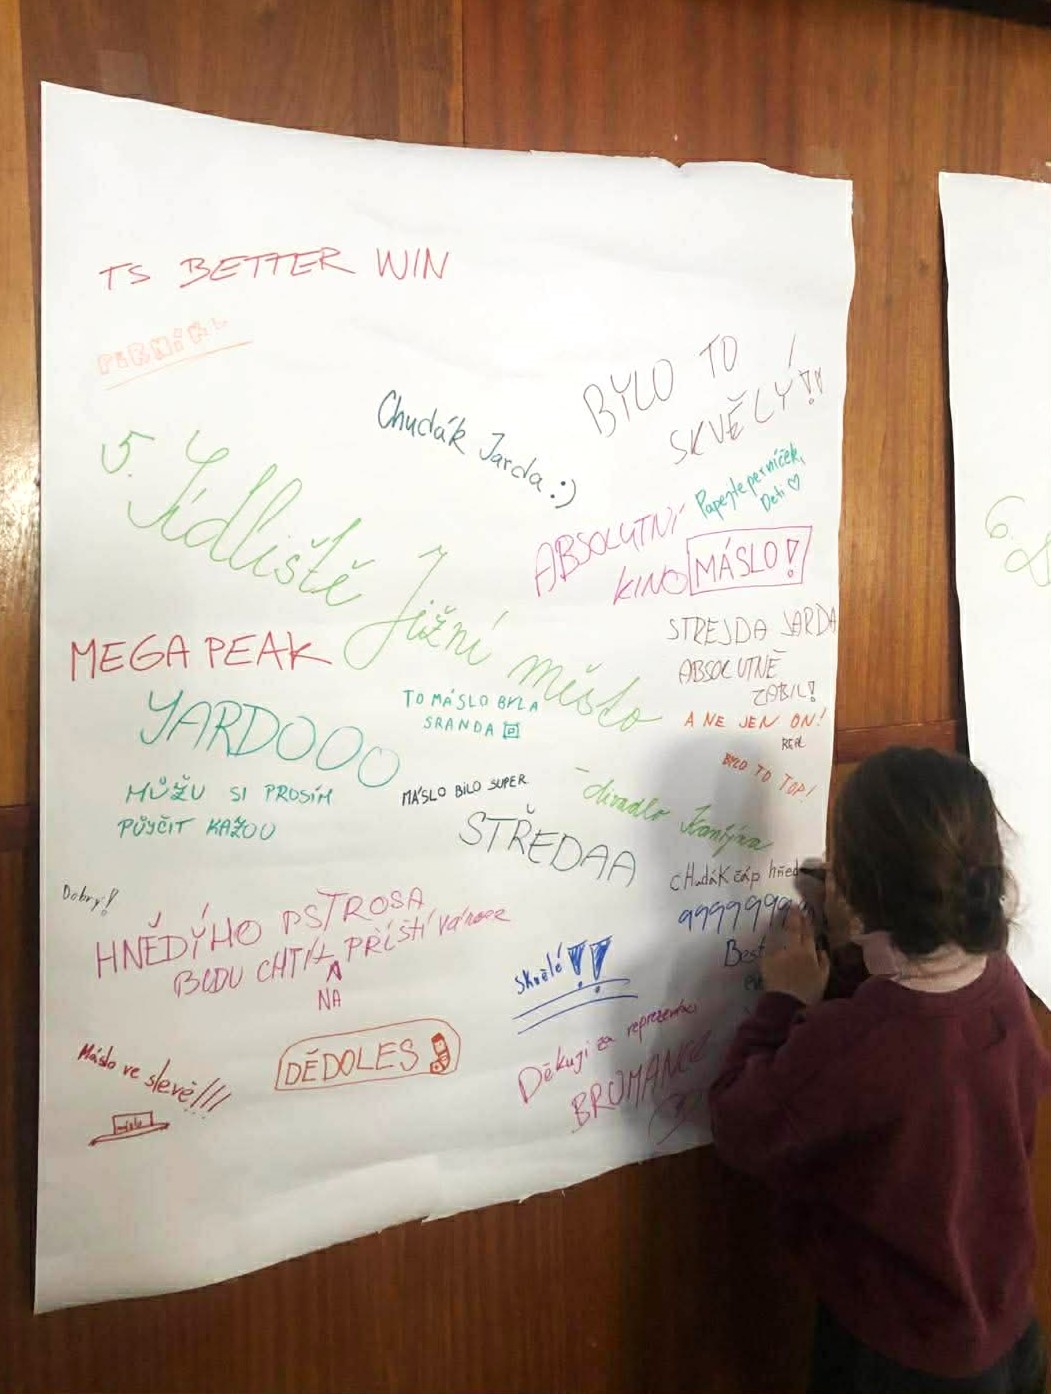 TS BETTER WIN
BYLO TO
SKVĚLÝ!!
Chudák Jarda :)
5. Jídliště Jižní město
Papejte perníček,
Deti ♡
ABSOLUTNÍ
KINO
MÁSLO!
STREJDA JARDA
ABSOLUTNĚ
ZABIL!
A NE JEN ON!
REAL
MEGA PEAK
YARDOOO
TO MÁSLO BYLA
SRANDA
BYLO TO TOP!
MŮŽU SI PROSÍM
PŮJČIT KAŽOU
MÁSLO BILO SUPER
- divadlo Kantýna
STŘEDAA
cHudáK čáp hněd
9999999
Best
Dobry!
HNĚDÝHO PŠTROSA
BUDU CHTÍT PŘÍŠTÍ Vánoce
NA
Skvělé !!
Máslo ve slevě!!!
máslo
DĚDOLES
Děkuji za reprezentaci
BROMANCE
6.